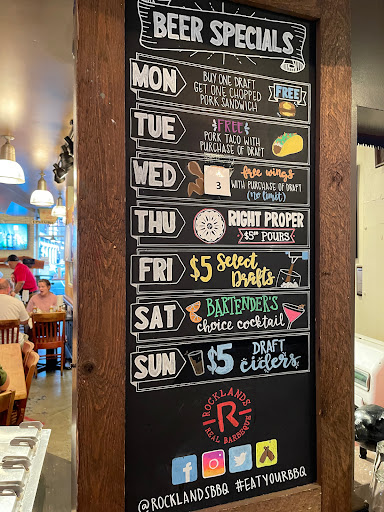 BEER SPECIALS
MON
BUY ONE DRAFT
GET ONE CHOPPED
PORK SANDWICH
FREE
TUE
FREE
PORK TACO WITH
PURCHASE OF DRAFT
WED
3
free wings
WITH PURCHASE OF DRAFT
(no limit)
THU
RIGHT PROPER
$5 POURS
FRI
$5 Select
Drafts
SAT
BARTENDER'S
choice cocktail
SUN
$5 DRAFT
ciders
ROCKLANDS
R
REAL BARBEQUE
@ROCKLANDSBBQ #EATYOURBBQ